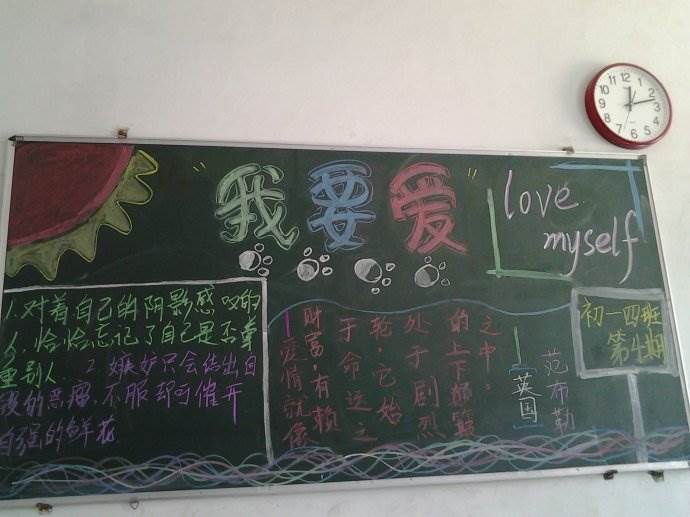 "我要爱"
love
myself
1、对着自己的阴影感叹的
人,恰恰忘记了自己是否尊
重别人
2 嫉妒只会结出白
的恶瘤,不服却可催开
自强的鲜花
爱情就像
财富,有赖
于命运之
轮,它始
处于剧烈
的上下颠簸
之中。
——[英国]
范布勒
初一四班
第4期
12
1
2
3
4
5
6
7
8
9
10
11